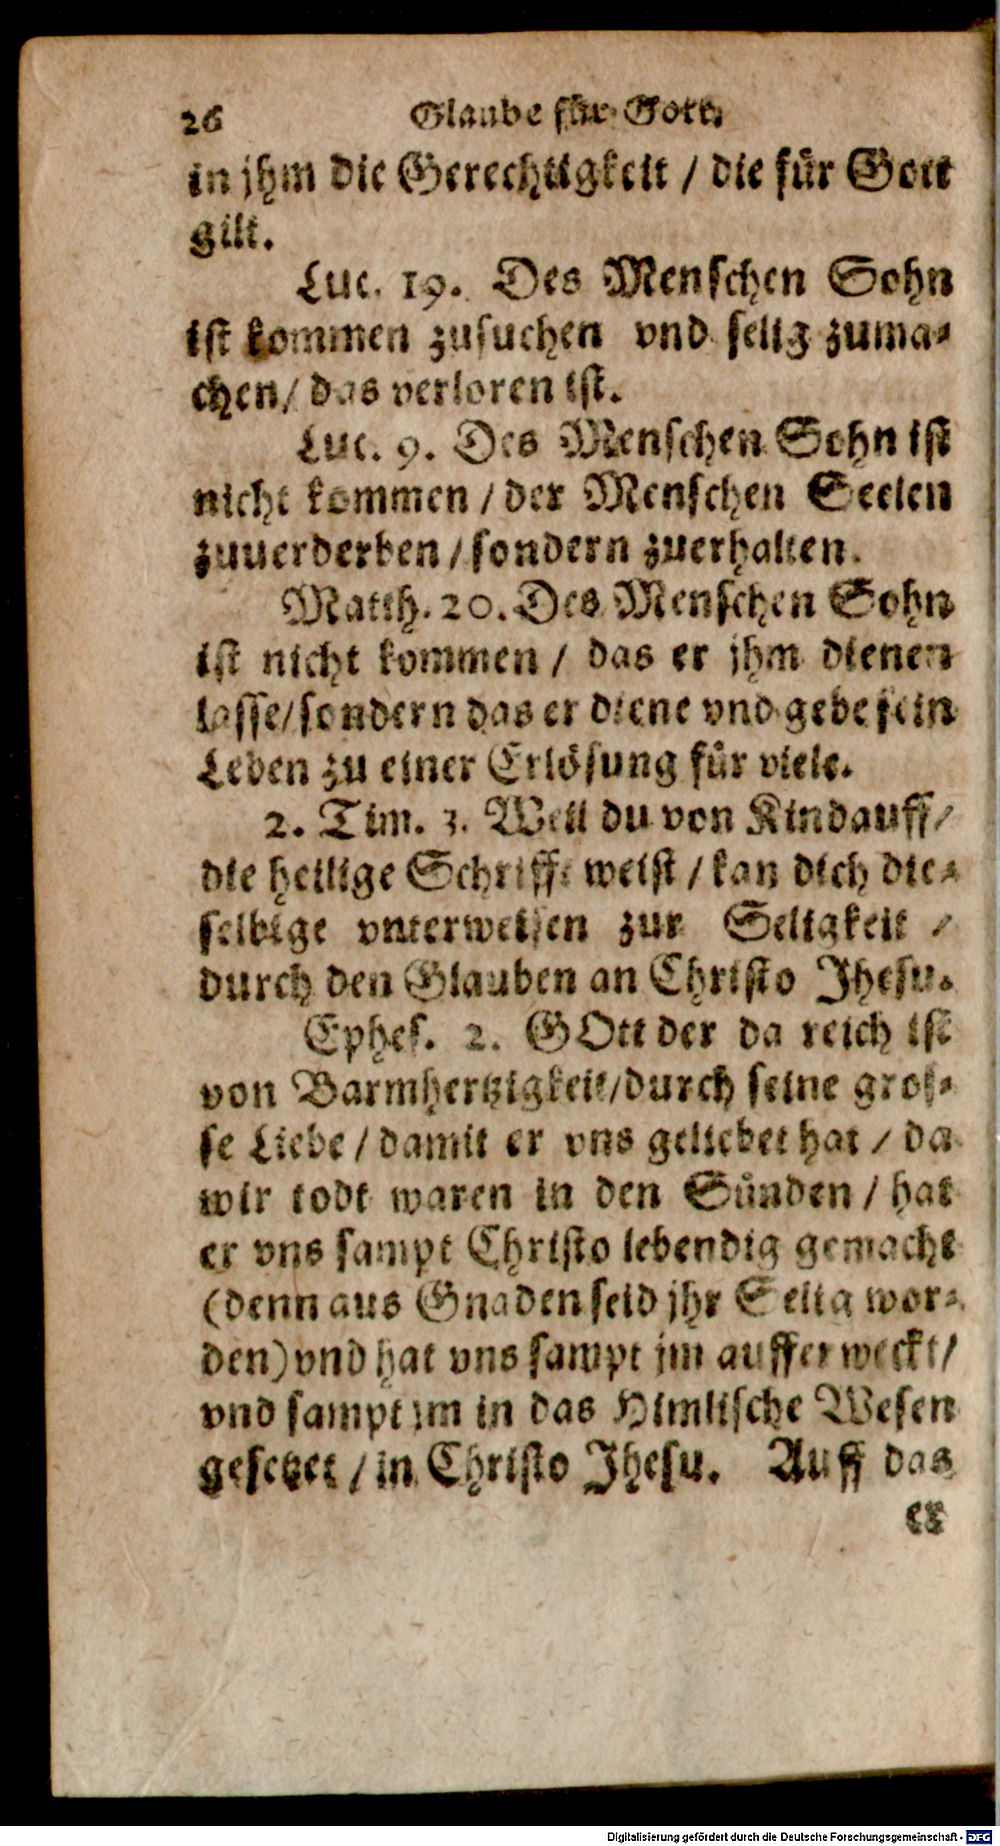 26 Glaube für Gott.
in jhm die Gerechtigkeit / die für Gott
gilt.
Luc. 19. Des Menschen Sohn
ist kommen zusuchen vnd selig zuma-
chen / das verloren ist.
Luc. 9. Des Menschen Sohn ist
nicht kommen / der Menschen Seelen
zuuerderben / sondern zuerhalten.
Matth. 20. Des Menschen Sohn
ist nicht kommen / das er jhm dienen
lasse / sondern das er diene vnd gebe sein
Leben zu einer Erlösung für viele.
2. Tim. 3. Weil du von Kindauff /
die heilige Schrifft weist / kan dich die-
selbige vnterweisen zur Seligkeit /
durch den Glauben an Christo Jhesu.
Ephes. 2. GOtt der da reich ist
von Barmhertzigkeit / durch seine gros-
se Liebe / damit er vns geliebet hat / da
wir todt waren in den Sünden / hat
er vns sampt Christo lebendig gemacht
(denn aus Gnaden seid jhr Selig wor-
den) vnd hat vns sampt jm aufferweckt /
vnd sampt jm in das Himlische Wesen
gesetzet / in Christo Jhesu. Auff das
er
Digitalisierung gefördert durch die Deutsche Forschungsgemeinschaft - DFG